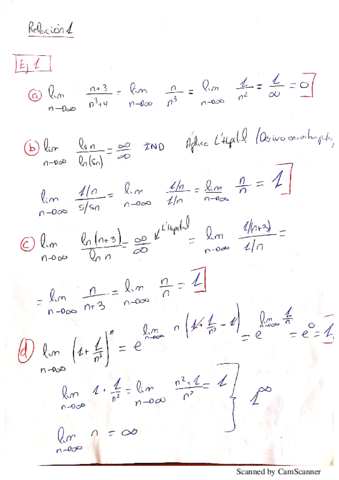 Relación 1
Ej 1
a) lim n→∞ (n+3)/(n³+4) = lim n→∞ n/n³ = lim n→∞ 1/n² = 1/∞ = 0
b) lim n→∞ ln n/ln(5n) = ∞/∞ IND Aplico L'Hopital
lim n→∞ (1/n)/(5/5n) = lim n→∞ (1/n)/(1/n) = lim n→∞ n/n = 1
c) lim n→∞ ln(n+3)/ln n = ∞/∞ L'Hopital = lim n→∞ (1/(n+3))/(1/n) =
= lim n→∞ n/(n+3) = lim n→∞ n/n = 1
d) lim n→∞ (1+1/n²)ⁿ = e^(lim n→∞ n(1+1/n²-1)) = e^(lim n→∞ 1/n) = e⁰ = 1
lim n→∞ 1+1/n² = lim n→∞ (n²+1)/n² = 1
1^∞
lim n→∞ n = ∞
Scanned by CamScanner